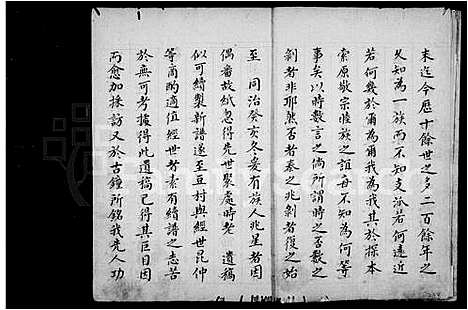 來迄今歷十餘世之多二百餘年之
久知為一族而不知支派若何遠近
若何幾於爾為爾我為我其於探本
索原敬宗睦族之誼毎不知為何等
事矣以時數言之倘所謂時之否數之
剝者非耶然否者泰之兆剝者復之始
至 同治癸亥冬爰有族人兆星者因
偶番故紙忽得先世聚處時墊 遺稿
似可續製新譜遂至豆村與經世昆仲
等商酌適值經世者素有續譜之志苦
於無可考㨿得此遺稿已得其巨目因
而愈加採訪又於古鐘所銘我先人功